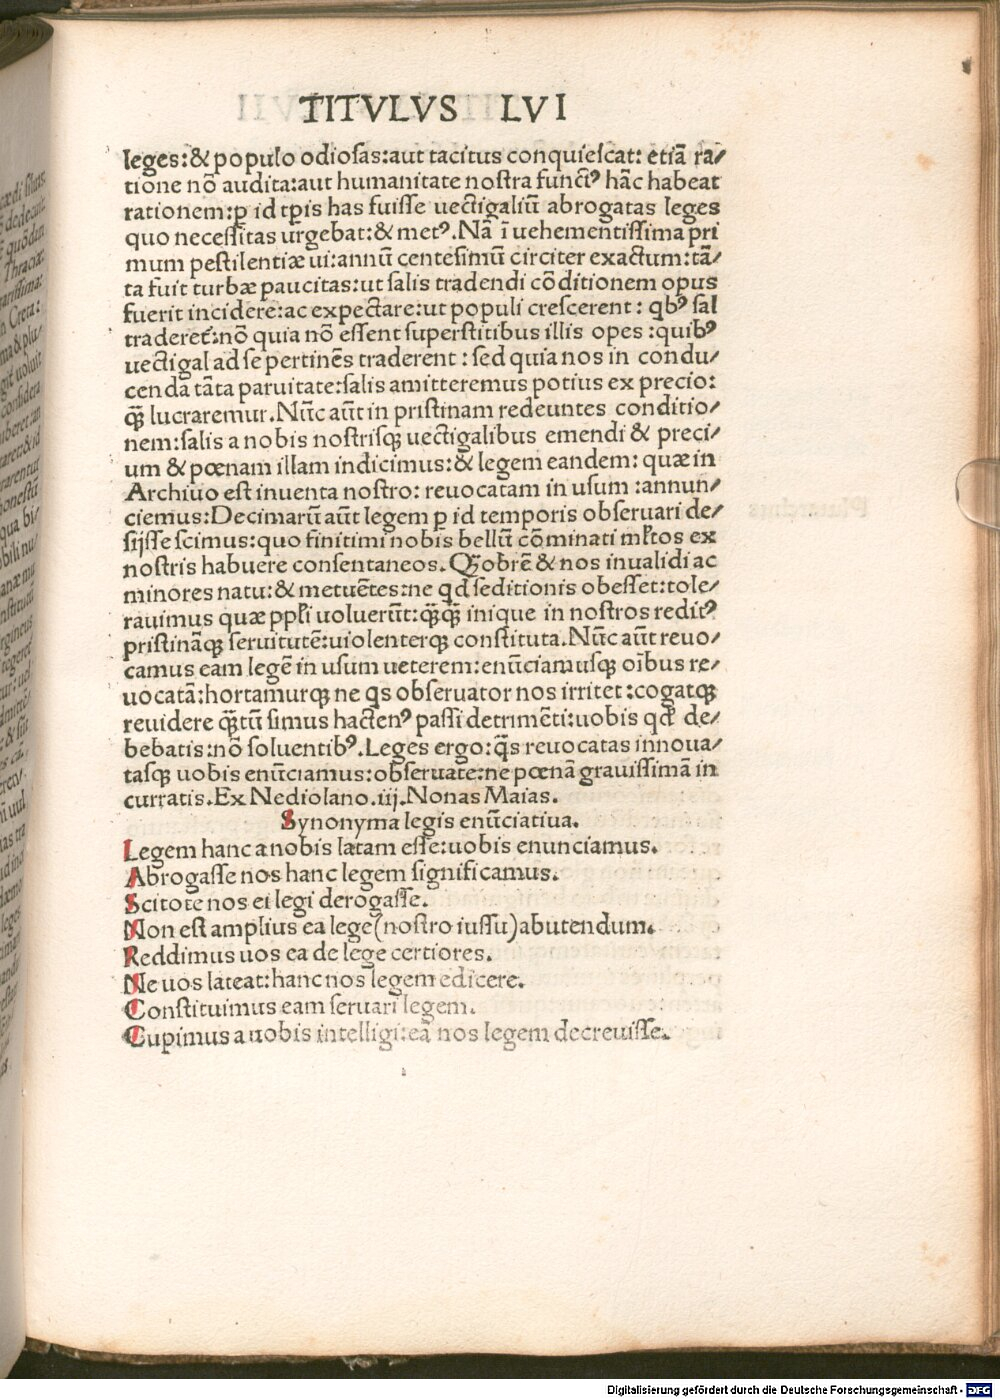 TITVLVS LVI
leges:& populo odiosas:aut tacitus conquiescat: etiã ra/
tione nõ audita:aut humanitate nostra functꝰ hãc habeat
rationem:ꝑ id tꝑis has fuisse uectigaliũ abrogatas leges
quo necessitas urgebat:& metꝰ.Nã ĩ uehementissima pri
mum pestilentiæ ui:annũ centesimũ circiter exactum:tã/
ta fuit turbæ paucitas:ut salis tradendi cõditionem opus
fuerit incidere:ac expectare:ut populi crescerent: qbꝰ sal
traderet̃:nõ quia nõ essent superstitibus illis opes:quibꝰ
uectigal ad se pertinẽs traderent:sed quia nos in condu/
cenda tãta paruitate:salis amitteremus potius ex precio:
q̃ꝫ lucraremur.Nũc aũt in pristinam redeuntes conditio/
nem:salis a nobis nostrisqꝫ uectigalibus emendi & preci/
um & pœnam illam indicimus:& legem eandem: quæ in
Archiuo est inuenta nostro: reuocatam in usum:annun/
ciemus:Decimarũ aũt legem ꝑ id temporis obseruari de/
sijsse scimus:quo finitimi nobis bellũ cõminati ml̃tos ex
nostris habuere consentaneos.Qõobrẽ & nos inualidi ac
minores natu:& metuẽtes:ne qd seditionis obesset:tole/
rauimus quæ ppl̃i uoluerũt:q̃ꝫq̃ꝫ inique in nostros reditꝰ
pristinãqꝫ seruitutẽ:uiolenterqꝫ constituta.Nũc aũt reuo/
camus eam legẽ in usum ueterem:enũciamusqꝫ oĩbus re/
uocatã:hortamurqꝫ ne qs obseruator nos irritet:cogatqꝫ
reuidere q̃ꝫtũ simus hactenꝰ passi detrimẽti:uobis qđ de/
bebatis:nõ soluentibꝰ.Leges ergo:q̃s reuocatas innoua/
tasqꝫ uobis enũciamus:obseruate:ne pœnã grauissimã in
curratis.Ex Nediolano.iij.Nonas Maias.
Synonyma legis enũciatiua.
Legem hanc a nobis latam esse:uobis enunciamus.
Abrogasse nos hanc legem significamus.
Scitote nos ei legi derogasse.
Non est amplius ea lege(nostro iussu)abutendum.
Reddimus uos ea de lege certiores.
Ne uos lateat:hanc nos legem edicere.
Constituimus eam seruari legem.
Cupimus a uobis intelligi:eã nos legem decreuisse.
Digitalisierung gefördert durch die Deutsche Forschungsgemeinschaft - DFG